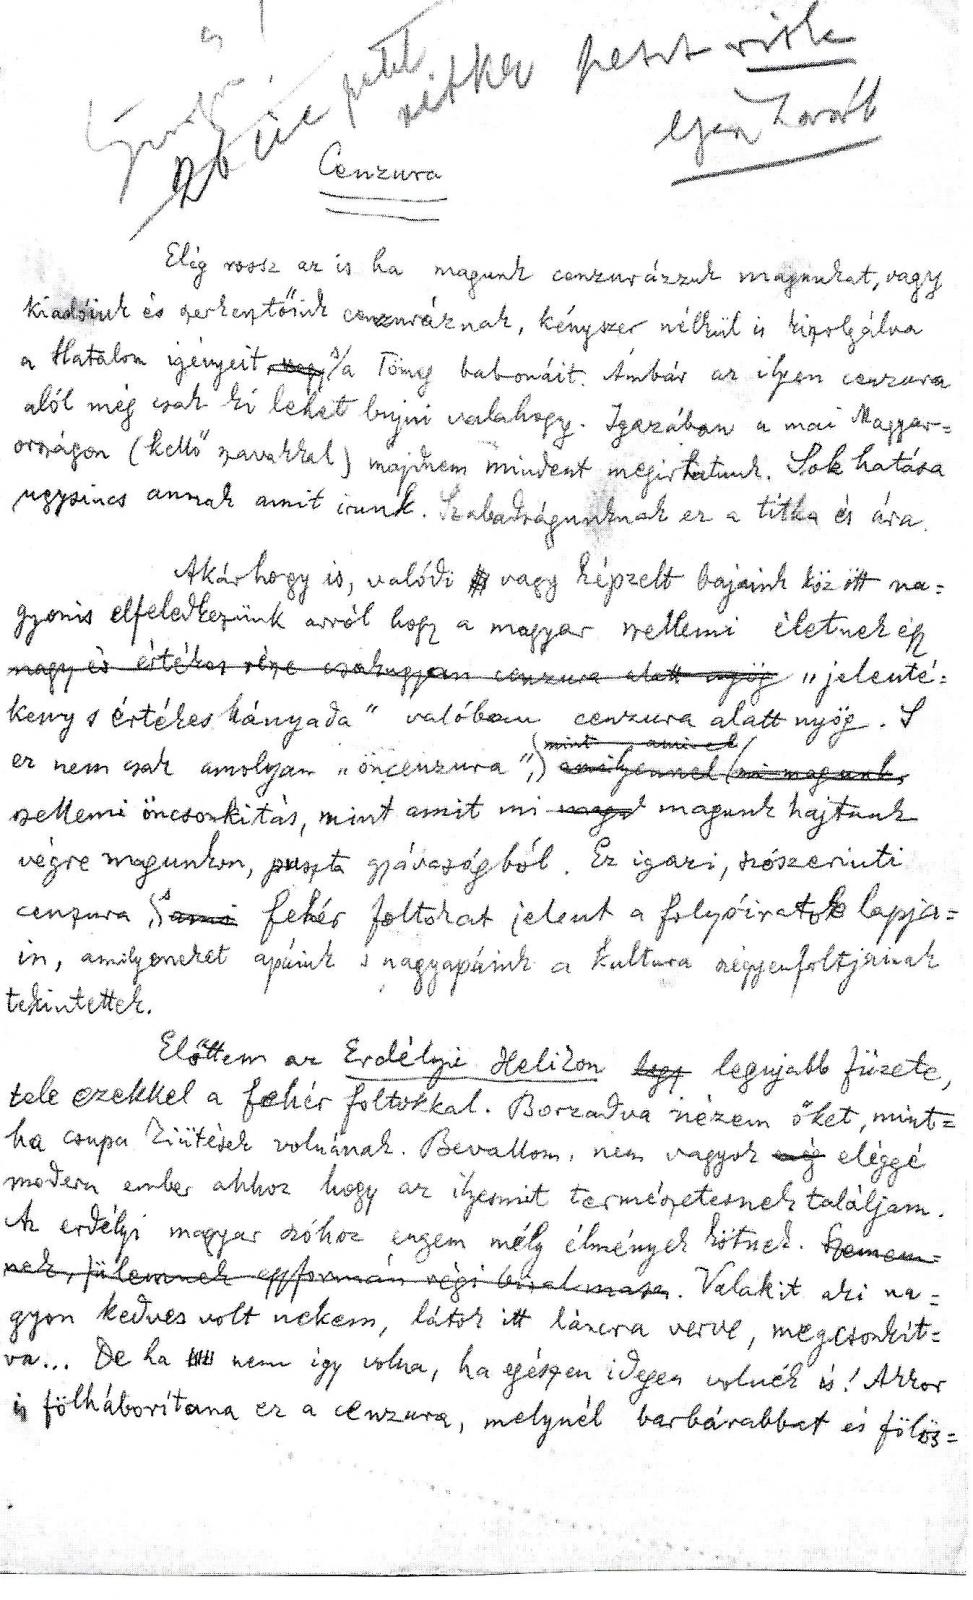 petit
ritka petit
Cenzura
Elég rossz az is ha magunk cenzurázzuk magunkat, vagy
kiadóink és szerkesztőink cenzuráznak, kényszer nélkül is kiszolgálva
a Hatalom igényeit vagy s/a Tömeg babonáit. Ámbár az ilyen cenzura
alól még csak ki lehet bujni valahogy. Igazában a mai Magyar=
országon (kellő szavakkal) majdnem mindent megirhatunk. Sok hatása
ugysincs annak amit irunk. Szabadságunknak ez a titka és ára.
Akárhogy is, valódi vagy képzelt bajaink között na=
gyonis elfeledkezünk arról hogy a magyar szellemi életnek egy
nagy és értékes része csakugyan cenzura alatt nyög „jelenté=
keny s értékes hányada” valóban cenzura alatt nyög. S
mint amivel
ez nem csak amolyan „öncenzura”, amilyennel (mi magunk,
szellemi öncsonkitás, mint amit mi magu magunk hajtunk
végre magunkon, puszta gyávaságból. Ez igazi, szószerinti
cenzura, s ami fehér foltokat jelent a folyóiratok lapja=
in, amilyeneket apáink s nagyapáink a kultura szégyenfoltjainak
tekintettek.
Előttem az Erdélyi Helikon legujabb füzete,
tele ezekkel a fehér foltokkal. Borzadva nézem őket, mint=
ha csupa kiütések volnának. Bevallom, nem vagyok elég eléggé
modern ember ahhoz hogy az ilyesmit természetesnek találjam.
Az erdélyi magyar szóhoz engem mély élmények kötnek. Szemem=
nek, fülemnek egyformán régi bizalmasa. Valakit aki na=
gyon kedves volt nekem, látok itt láncra verve, megcsonkit=
va... De ha nem igy volna, ha egészen idegen volnék is! Akkor
is fölháborítana ez a cenzura, melynél barbárabbat és fölös=